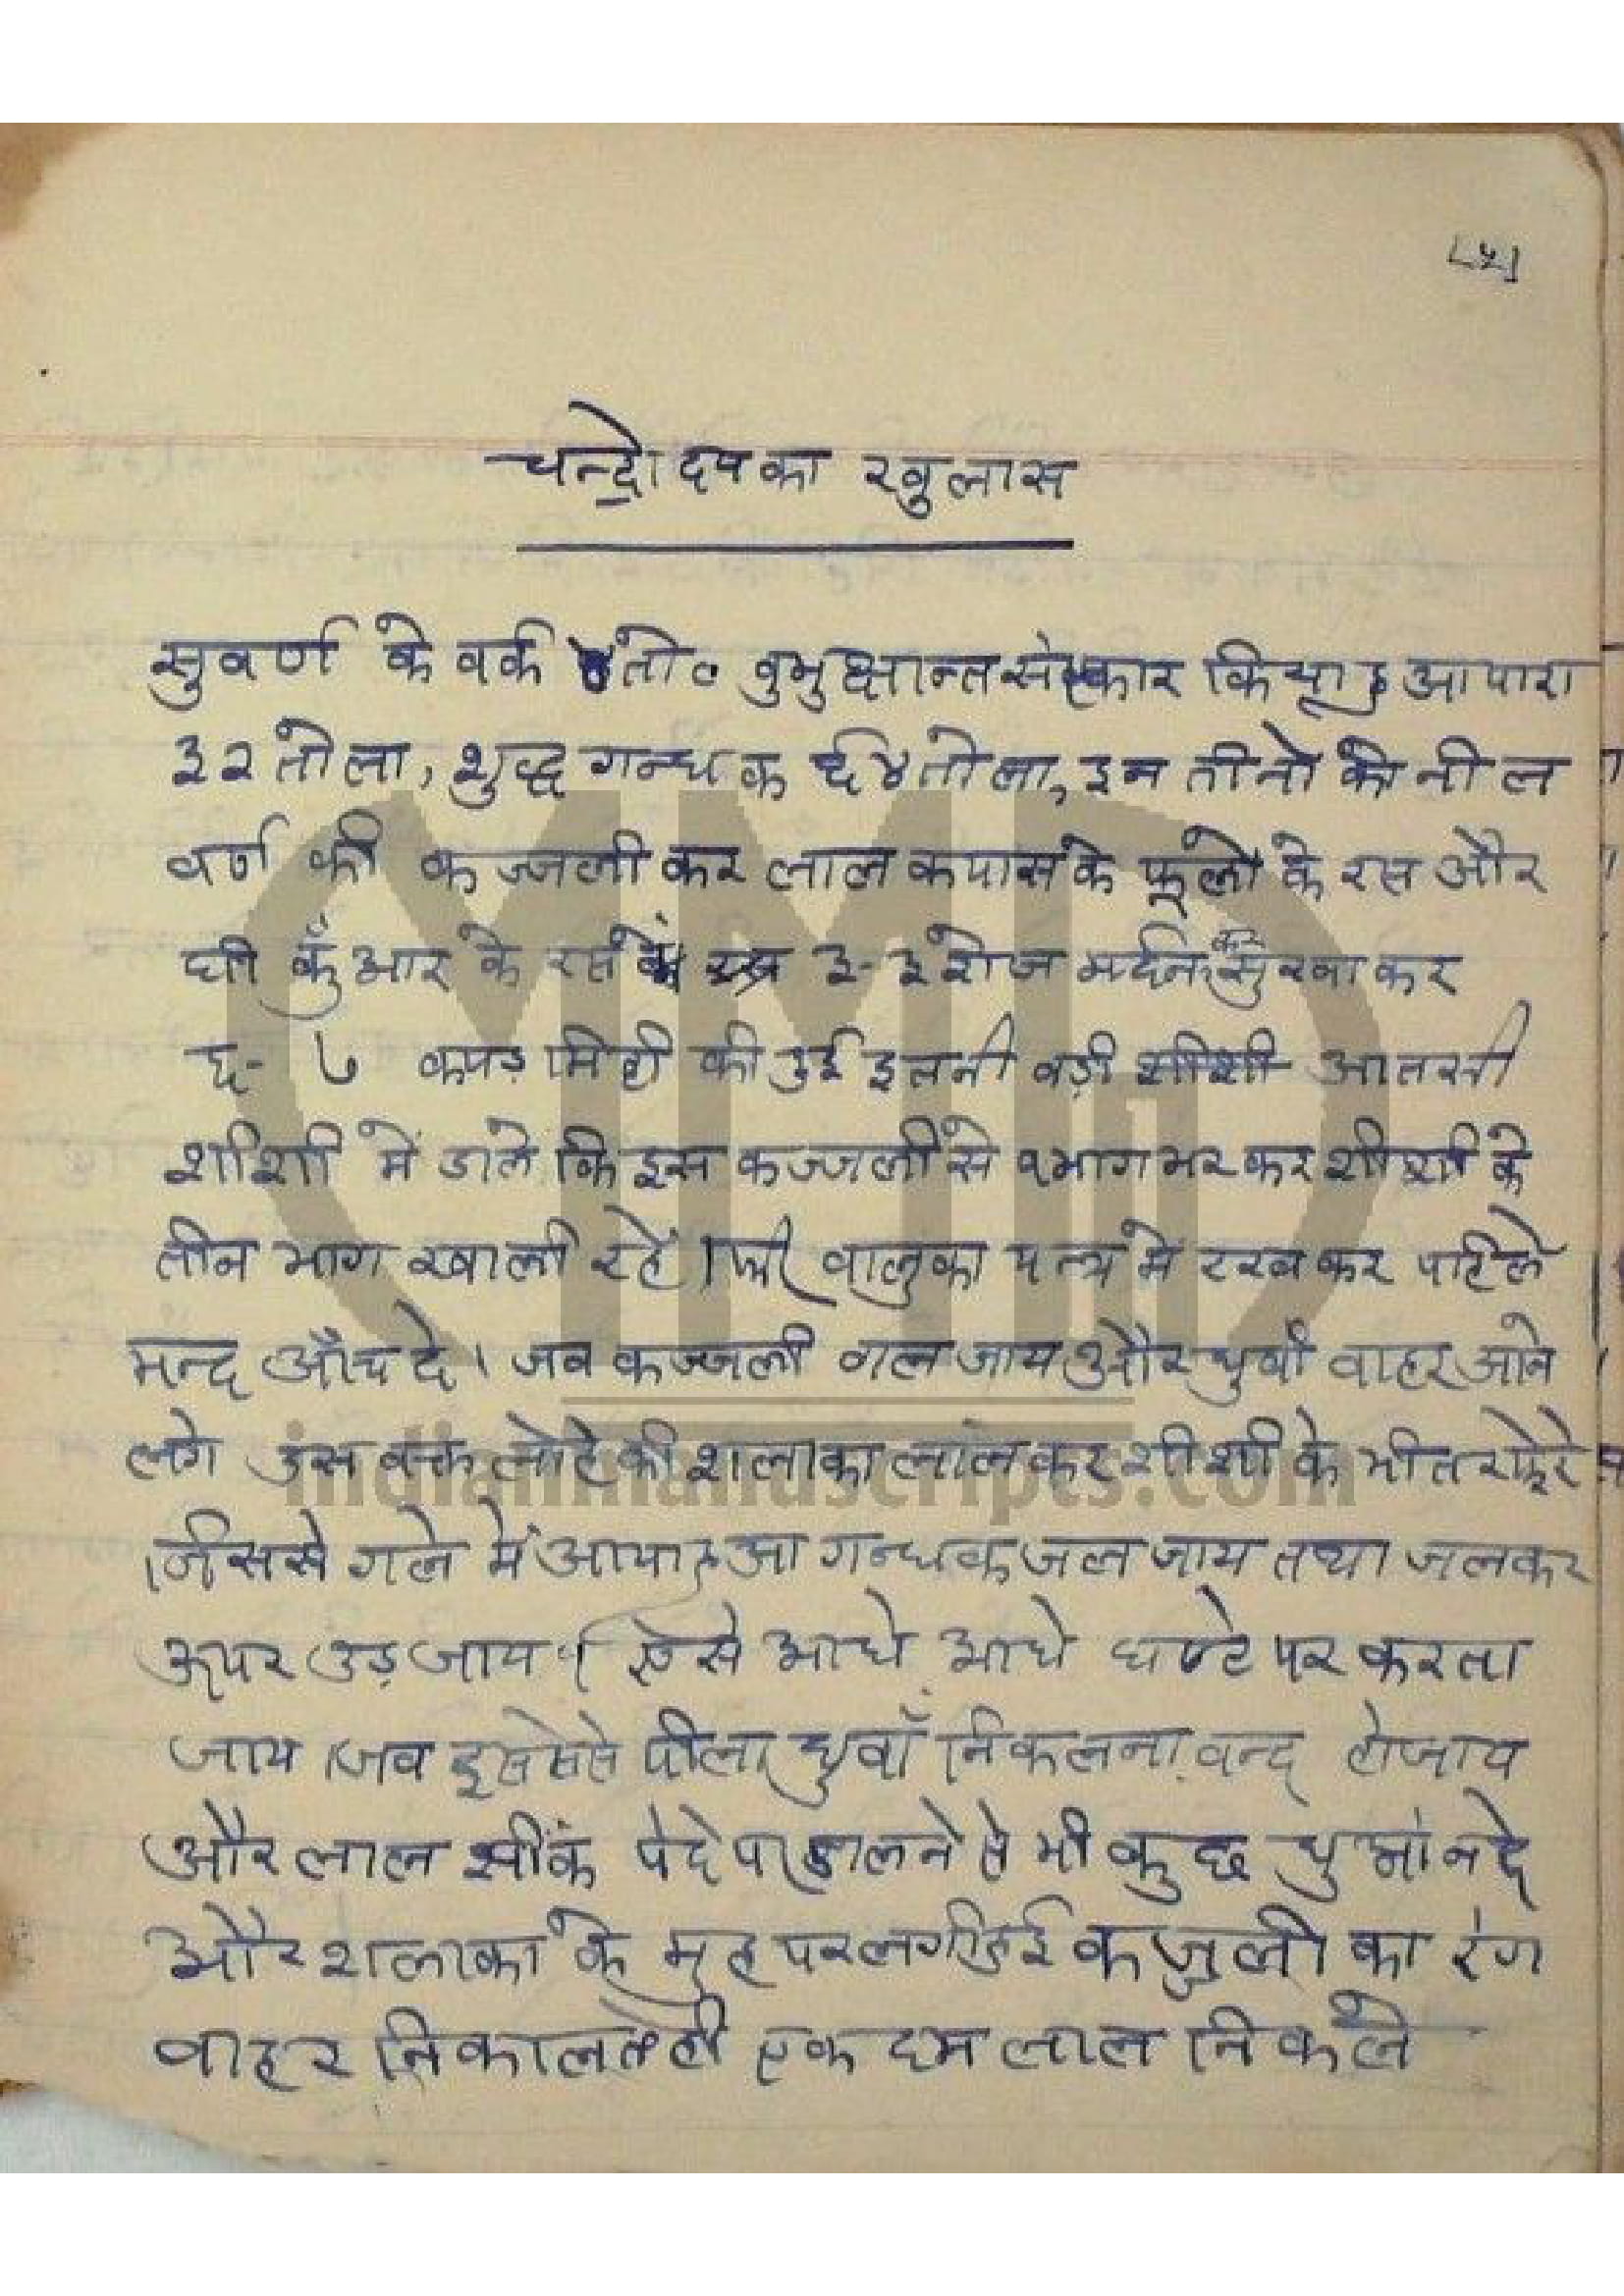 [५]
चन्द्रोदय का खुलास
सुवर्ण के वर्क ४ तो० वुभुक्षान्त संस्कार किया हुआ पारा
३२ तोला, शुद्ध गन्धक ६४ तोला, इन तीनो को नील
वर्ण की कज्जली कर लाल कपास के फूलो के रस और
घी कुँआर के रस में ३-३ रोज मर्दन कर सुखा कर
६- ७ कपड़ मिट्टी की हुई इतनी वड़ी शीशी आतसी
शीशी में डाले कि इस कज्जली से १ भाग भर कर शीशी के
तीन भाग खाली रहें । फिर वालुका यन्त्र मे रख कर पहिले
मन्द आँच दे । जव कज्जली गल जाय और धुवाँ वाहर आने
लगे उस वक्त लोहे की शलाका लाल कर शीशी के भीतर फेरे
जिससे गले में आया हुआ गन्धक जल जाय तथा जलकर
ऊपर उड़ जाय । ऐसे आधे आधे घण्टे पर करता
जाय । जव इसमेसे पीला धुवाँ निकलना वन्द होजाय
और लाल सींक पेंदे पर डालने से भी कुछ धुआं न दे
और शलाका के मुह पर लगी हुई कज्जली का रंग
वाहर निकालते ही एक दम लाल निकले
indianmanuscripts.com